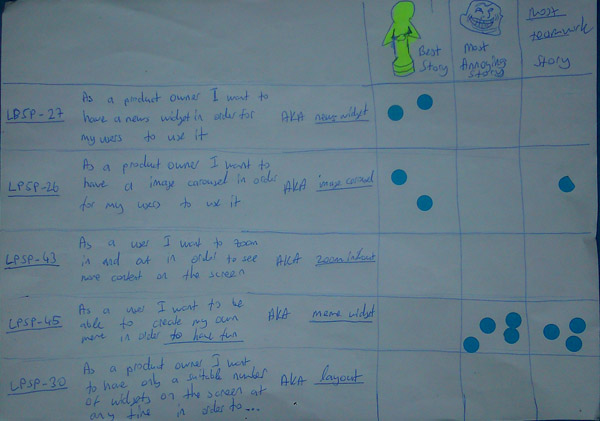 Best Story
Most Annoying Story
Most teamwork Story
LPSP-27
As a product owner I want to
have a news widget in order for
my users to use it
AKA news widget
LPSP-26
As a product owner I want to
have a image carousel in order
for my users to use it
AKA image carousel
LPSP-43
As a user I want to zoom
in and out in order to see
more content on the screen
AKA zoom in/out
LPSP-45
As a user I want to be
able to create my own
meme in order to have fun
AKA meme widget
LPSP-30
As a product owner I want
to have only a suitable number
of widgets on the screen at
any time in order to...
AKA layout